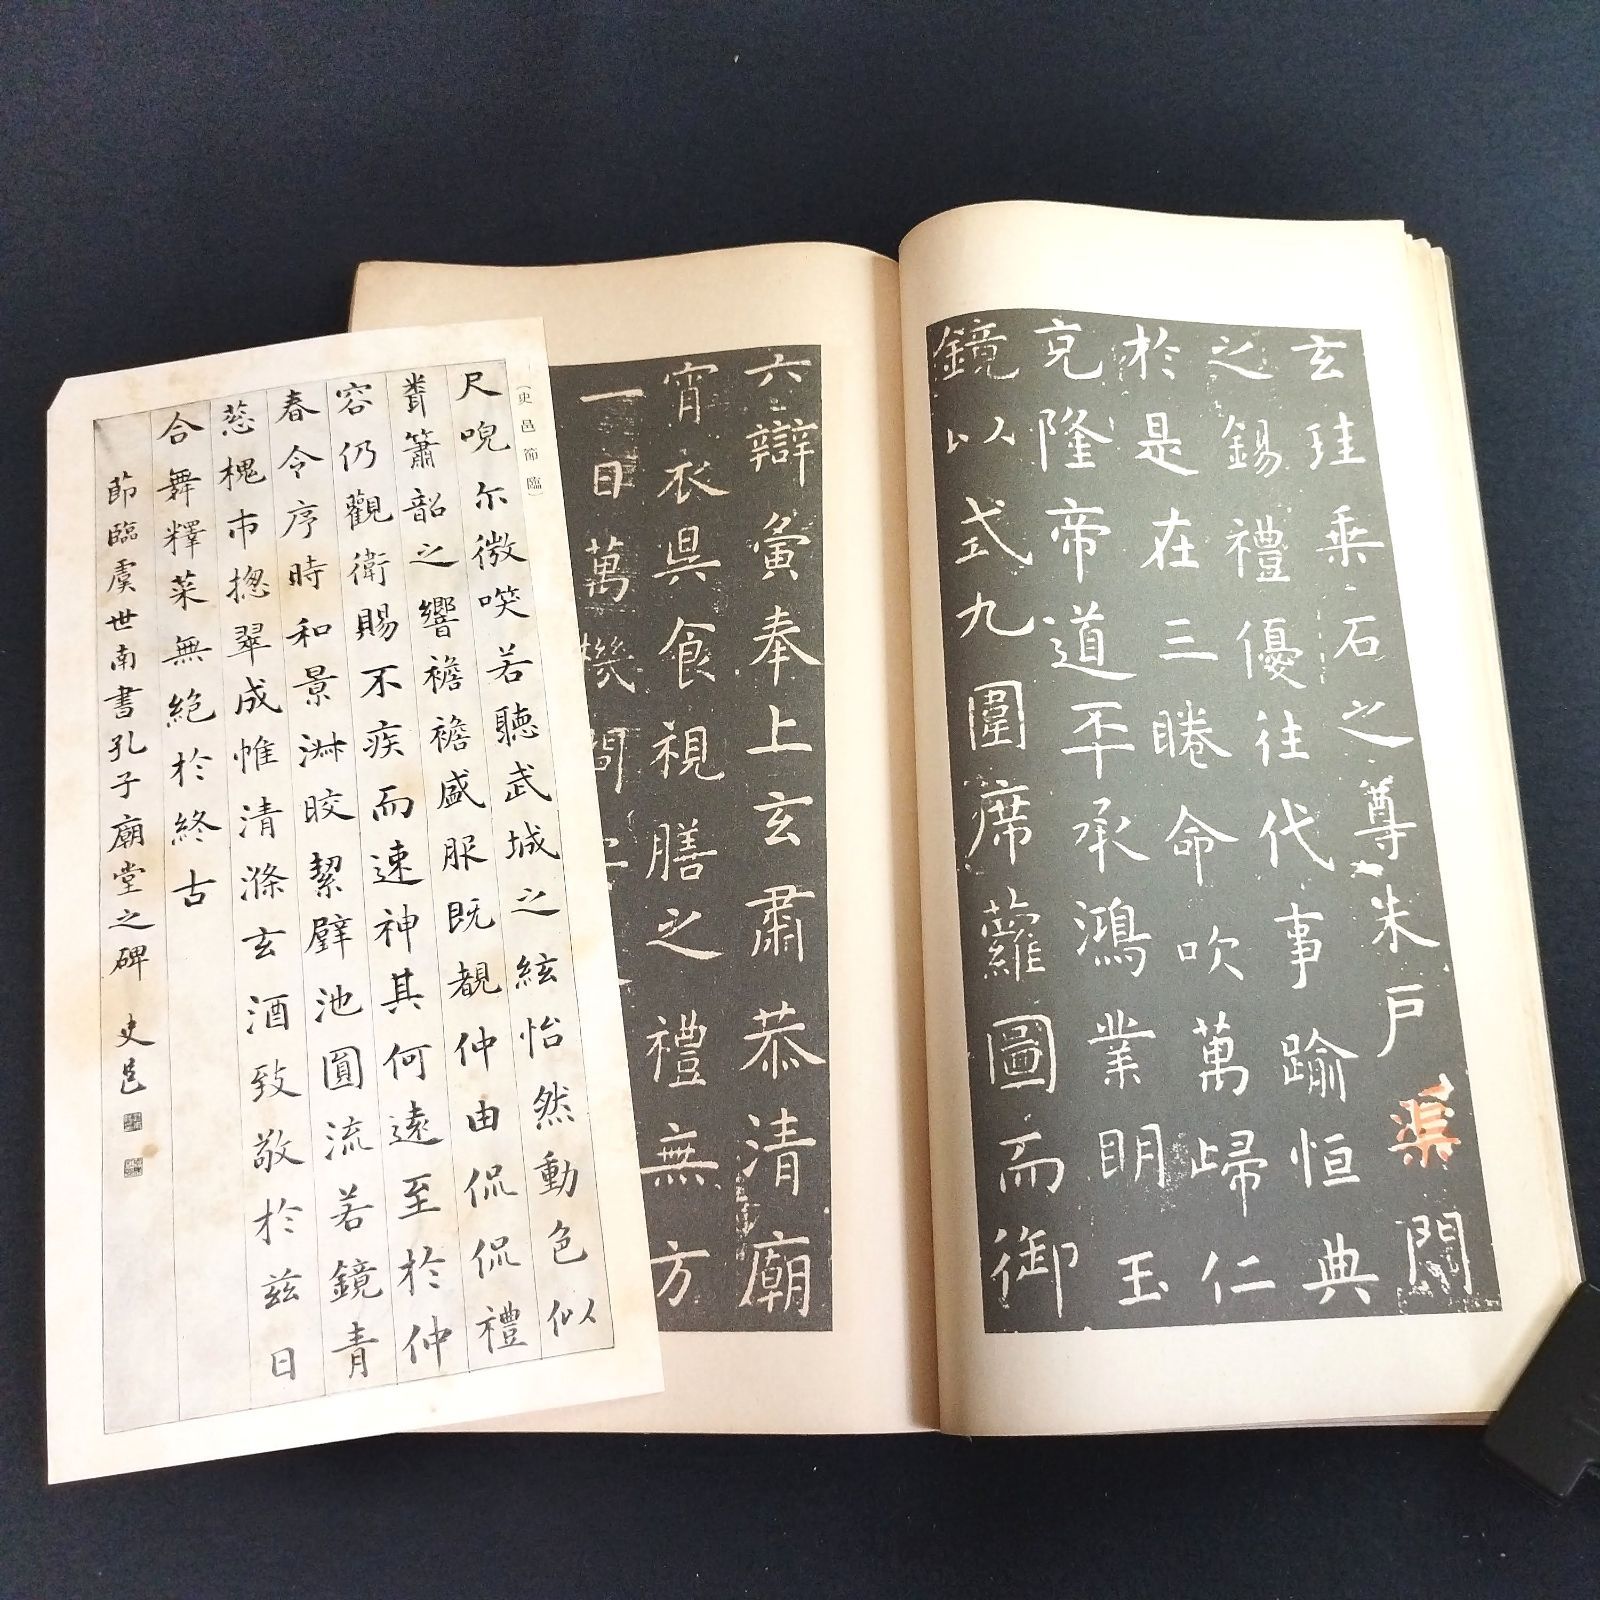 玄珪乘石之尊朱戶渠門
之錫禮優往代事踰恒典
於是在三睠命吹萬歸仁
克隆帝道丕承鴻業明玉
鏡以式九圍席蘿圖而御
六辯寅奉上玄肅恭清廟
宵衣昃食視膳之禮無方
一日萬機問
(史邑節臨)
咫尺唲尔微笑若聽武城之絃怡然動色似
聞簫韶之響襜襜盛服既覩仲由侃侃禮
容仍觀衛賜不疾而速神其何遠至於仲
春令序時和景淑皎絜璧池圓流若鏡青
蔥槐市揔翠成帷清滌玄酒致敬於茲日
合舞釋菜無絕於終古
節臨虞世南書孔子廟堂之碑 史邑